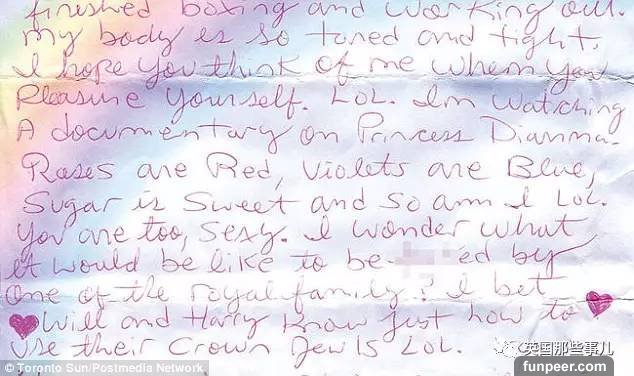 finished boxing and working out.
my body is so toned and tight.
I hope you think of me when you
Pleasure yourself. LOL. I'm watching
A documentary on Princess Dianna.
Roses are Red, Violets are Blue,
Sugar is Sweet and so am I LOL.
you are too, sexy. I wonder what
it would be like to be ed by
one of the royal family? I bet
Will and Harry know just how to
use their Crown Jewls LOL.
© Toronto Sun/Postmedia Network
英国那些事儿
funpeer.com